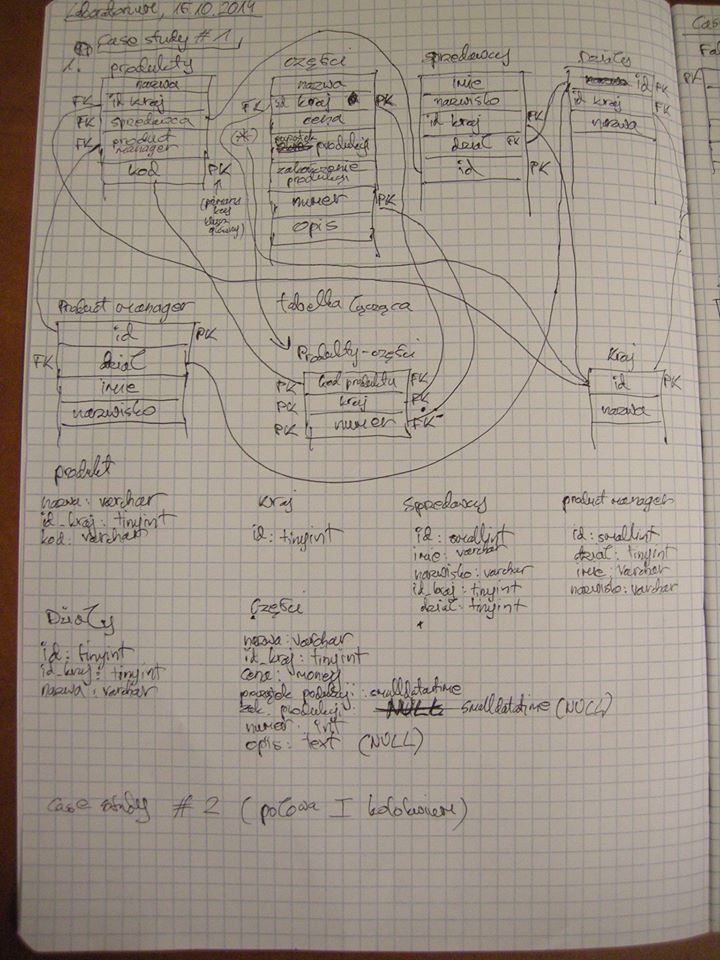 Laboratorium, 16.10.2014
Case study #1
1. produkty
nazwa
FK id kraj
FK sprzedawca
FK product manager
kod PK
części
nazwa
FK id kraj PK
cena
(*)
początek produkcji
zakończenie produkcji
numer PK
opis
sprzedawcy
imię
nazwisko
id kraj FK
dział FK
id PK
Działy
id PK
id kraj FK
nazwa
Product manager
id PK
FK dział
imię
nazwisko
tabelka łącząca
Produkty-części
PK kod produktu FK
PK kraj FK
PK numer FK
Kraj
id PK
nazwa
produkt
nazwa: varchar
id_kraj: tinyint
kod: varchar
Kraj
id: tinyint
Sprzedawcy
id: smallint
imię: varchar
nazwisko: varchar
id_kraj: tinyint
dział: tinyint
product manager
id: smallint
dział: tinyint
imię: varchar
nazwisko: varchar
Działy
id: tinyint
id_kraj: tinyint
nazwa: varchar
Części
nazwa: varchar
id_kraj: tinyint
cena: money
początek produkcji: smalldatatime
zak. produkcji: smalldatatime (NULL)
numer: int
opis: text (NULL)
Case study #2 (połowa I kolokwium)